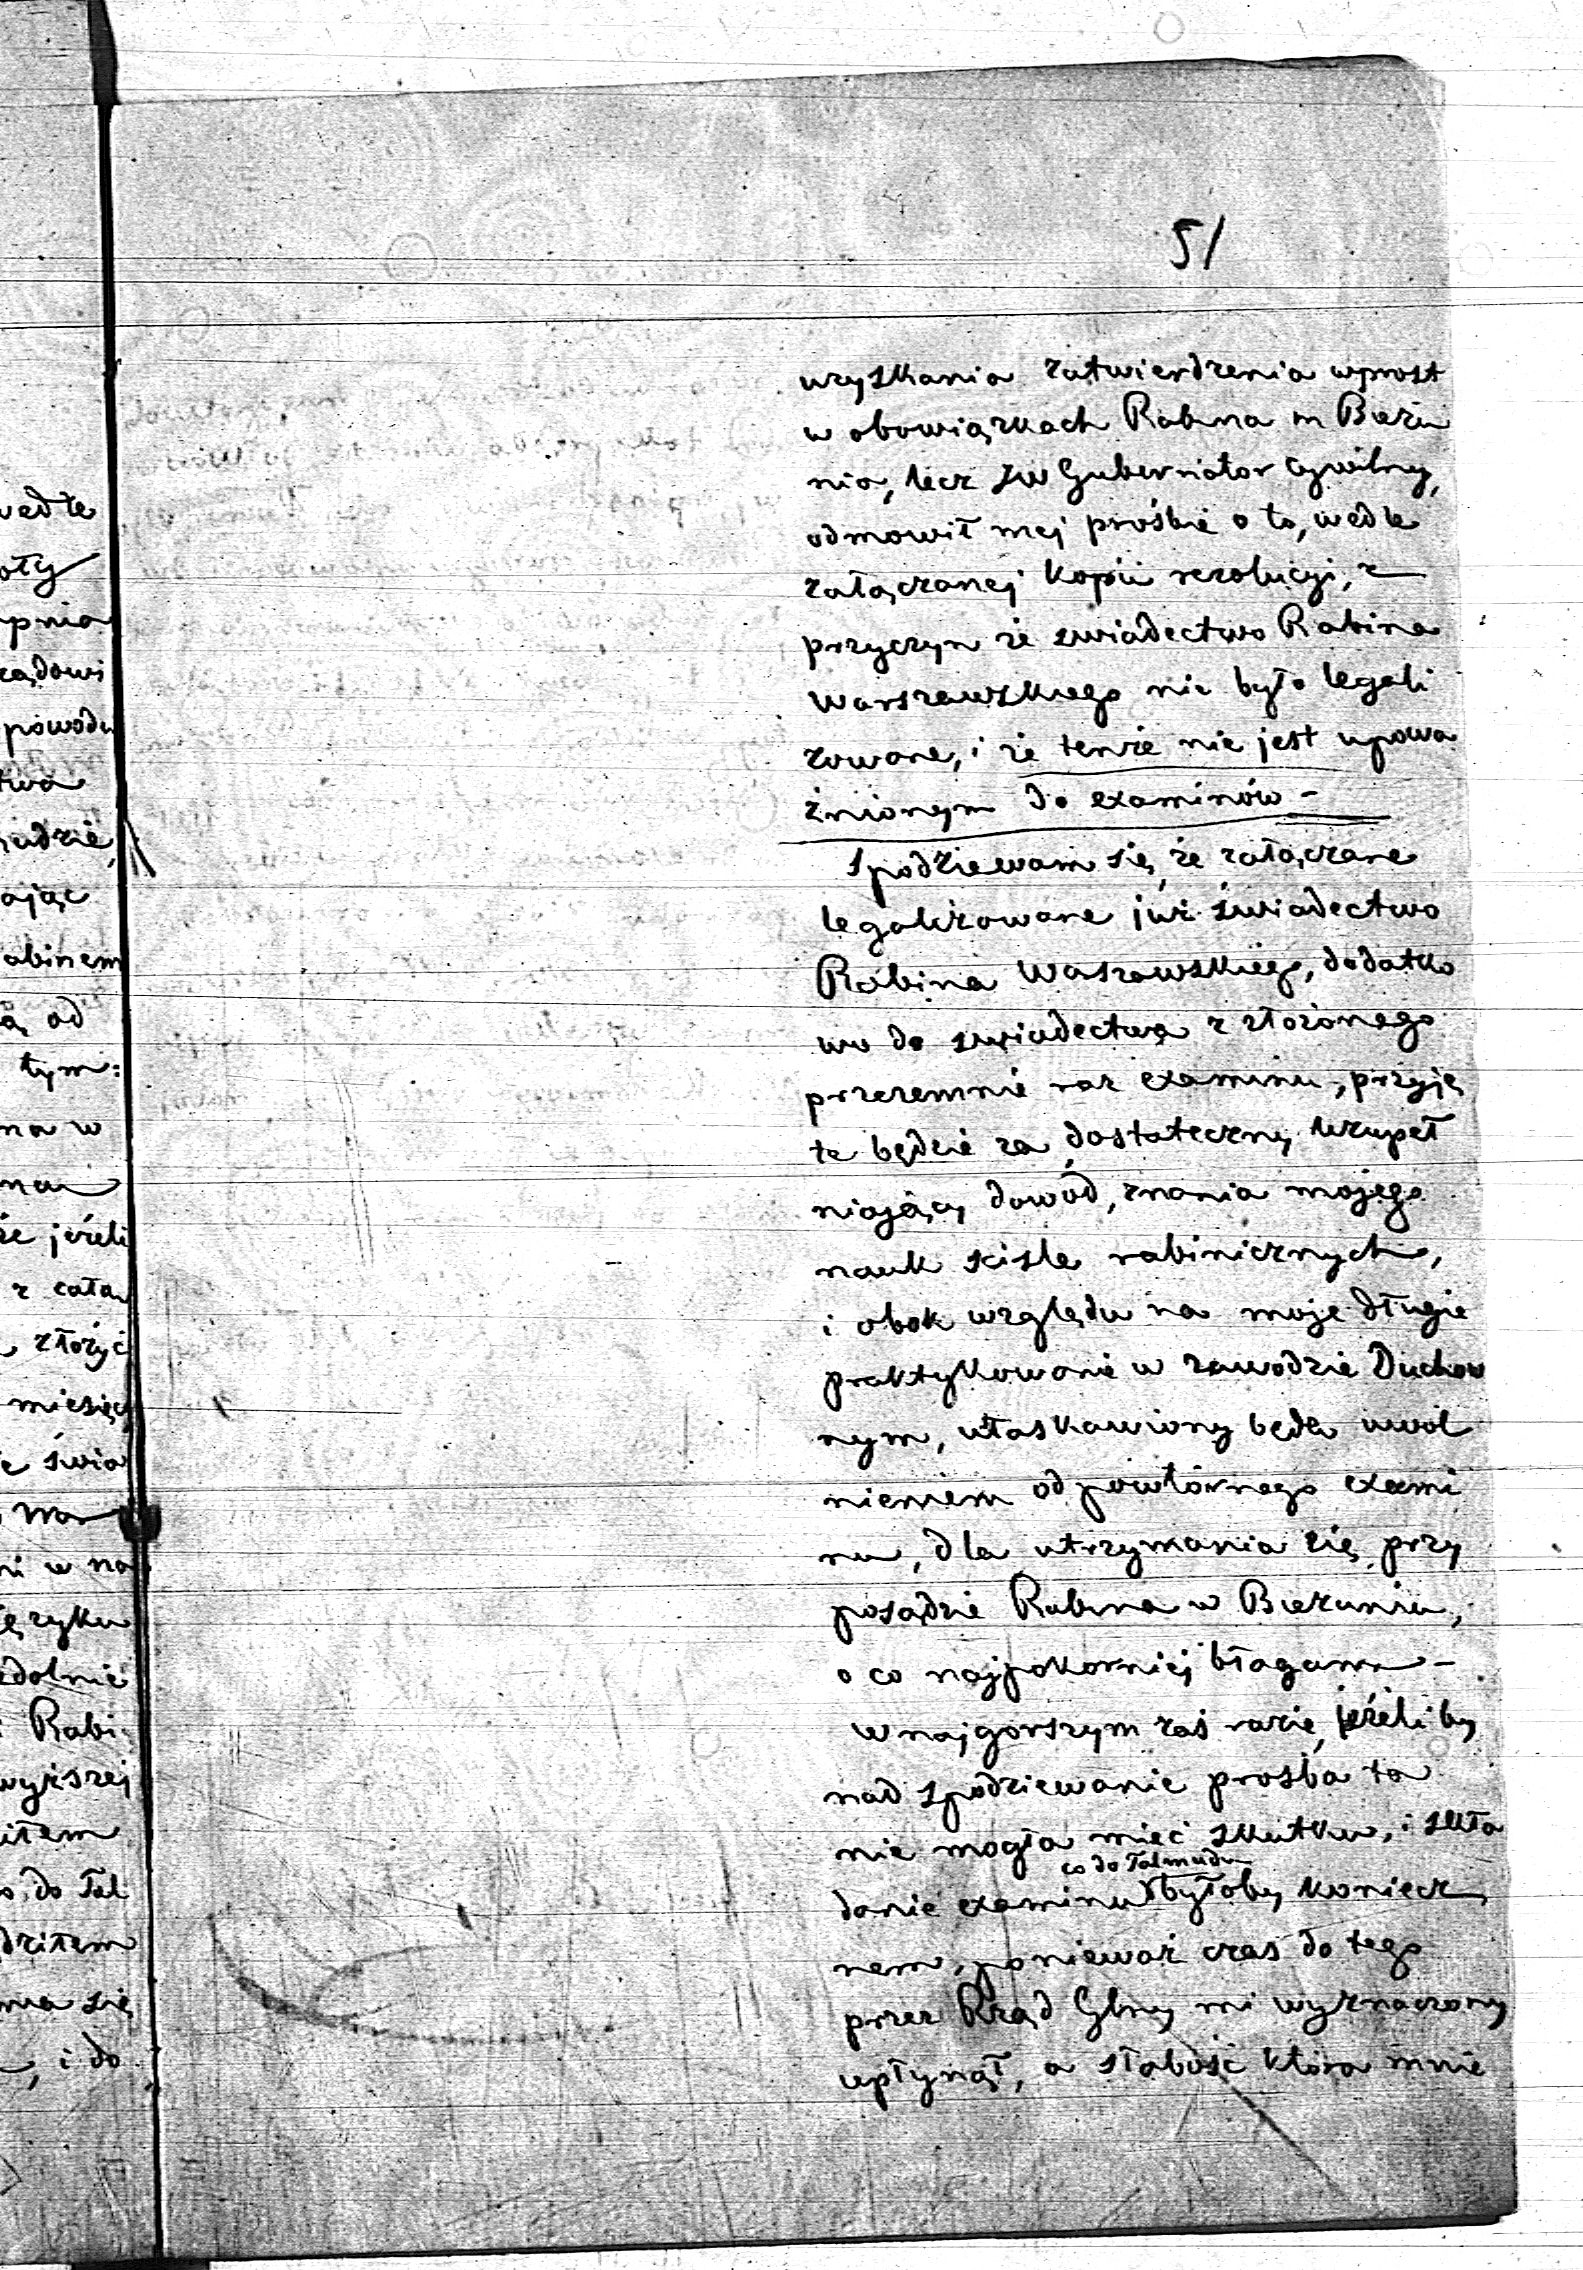 51
uzyskania zatwierdzenia wprost
w obowiązkach Rabina m Bieżu
nia, lecz JW Gubernator Cywilny,
odmowił mej prośbie o to, wedle
załączanej kopii rezolucyi, z
przyczyn że swiadectwo Rabina
Warszawskiego nie było legali
zowane, i że tenże nie jest upowa
żnionym do examinów -
Spodziewam się, że załączane
legalizowane już świadectwo
Rabina Waszawskiego, dodatko
wo do swiadectwa z złożonego
przezemnie raz examinu, przyję
te będzie za dostateczny uzupeł
niający dowód, znania mojego
nauk scisle rabinicznych,
i obok względu na moje długie
praktykowanie w zawodzie Duchow
nym, ułaskawiony będę uwol
nieniem od powtórnego exami
nu, dla utrzymania się przy
posadzie Rabina w Bieżuniu,
o co najpokorniej błagam -
W najgorszym zaś razie, jeżeliby
nad spodziewanie prosba ta
nie mogła mieć skutku, i skła
co do Talmudu
danie examinu byłoby koniecz
nem, ponieważ czas do tego
przez Rząd Gbny mi wyznaczony
upłynął, a słabość która mnie
wedle
oły
pnia
ządowi
powodu
twa
ając
abinem
ą od
tym:
na w
że jeżeli
z całą
złożyć
miesięcy
świa
ni w na
ęzyku
zdolnie
Rabi
wyższej
iłem
o, do Tal
dziłem
nia się
, i do